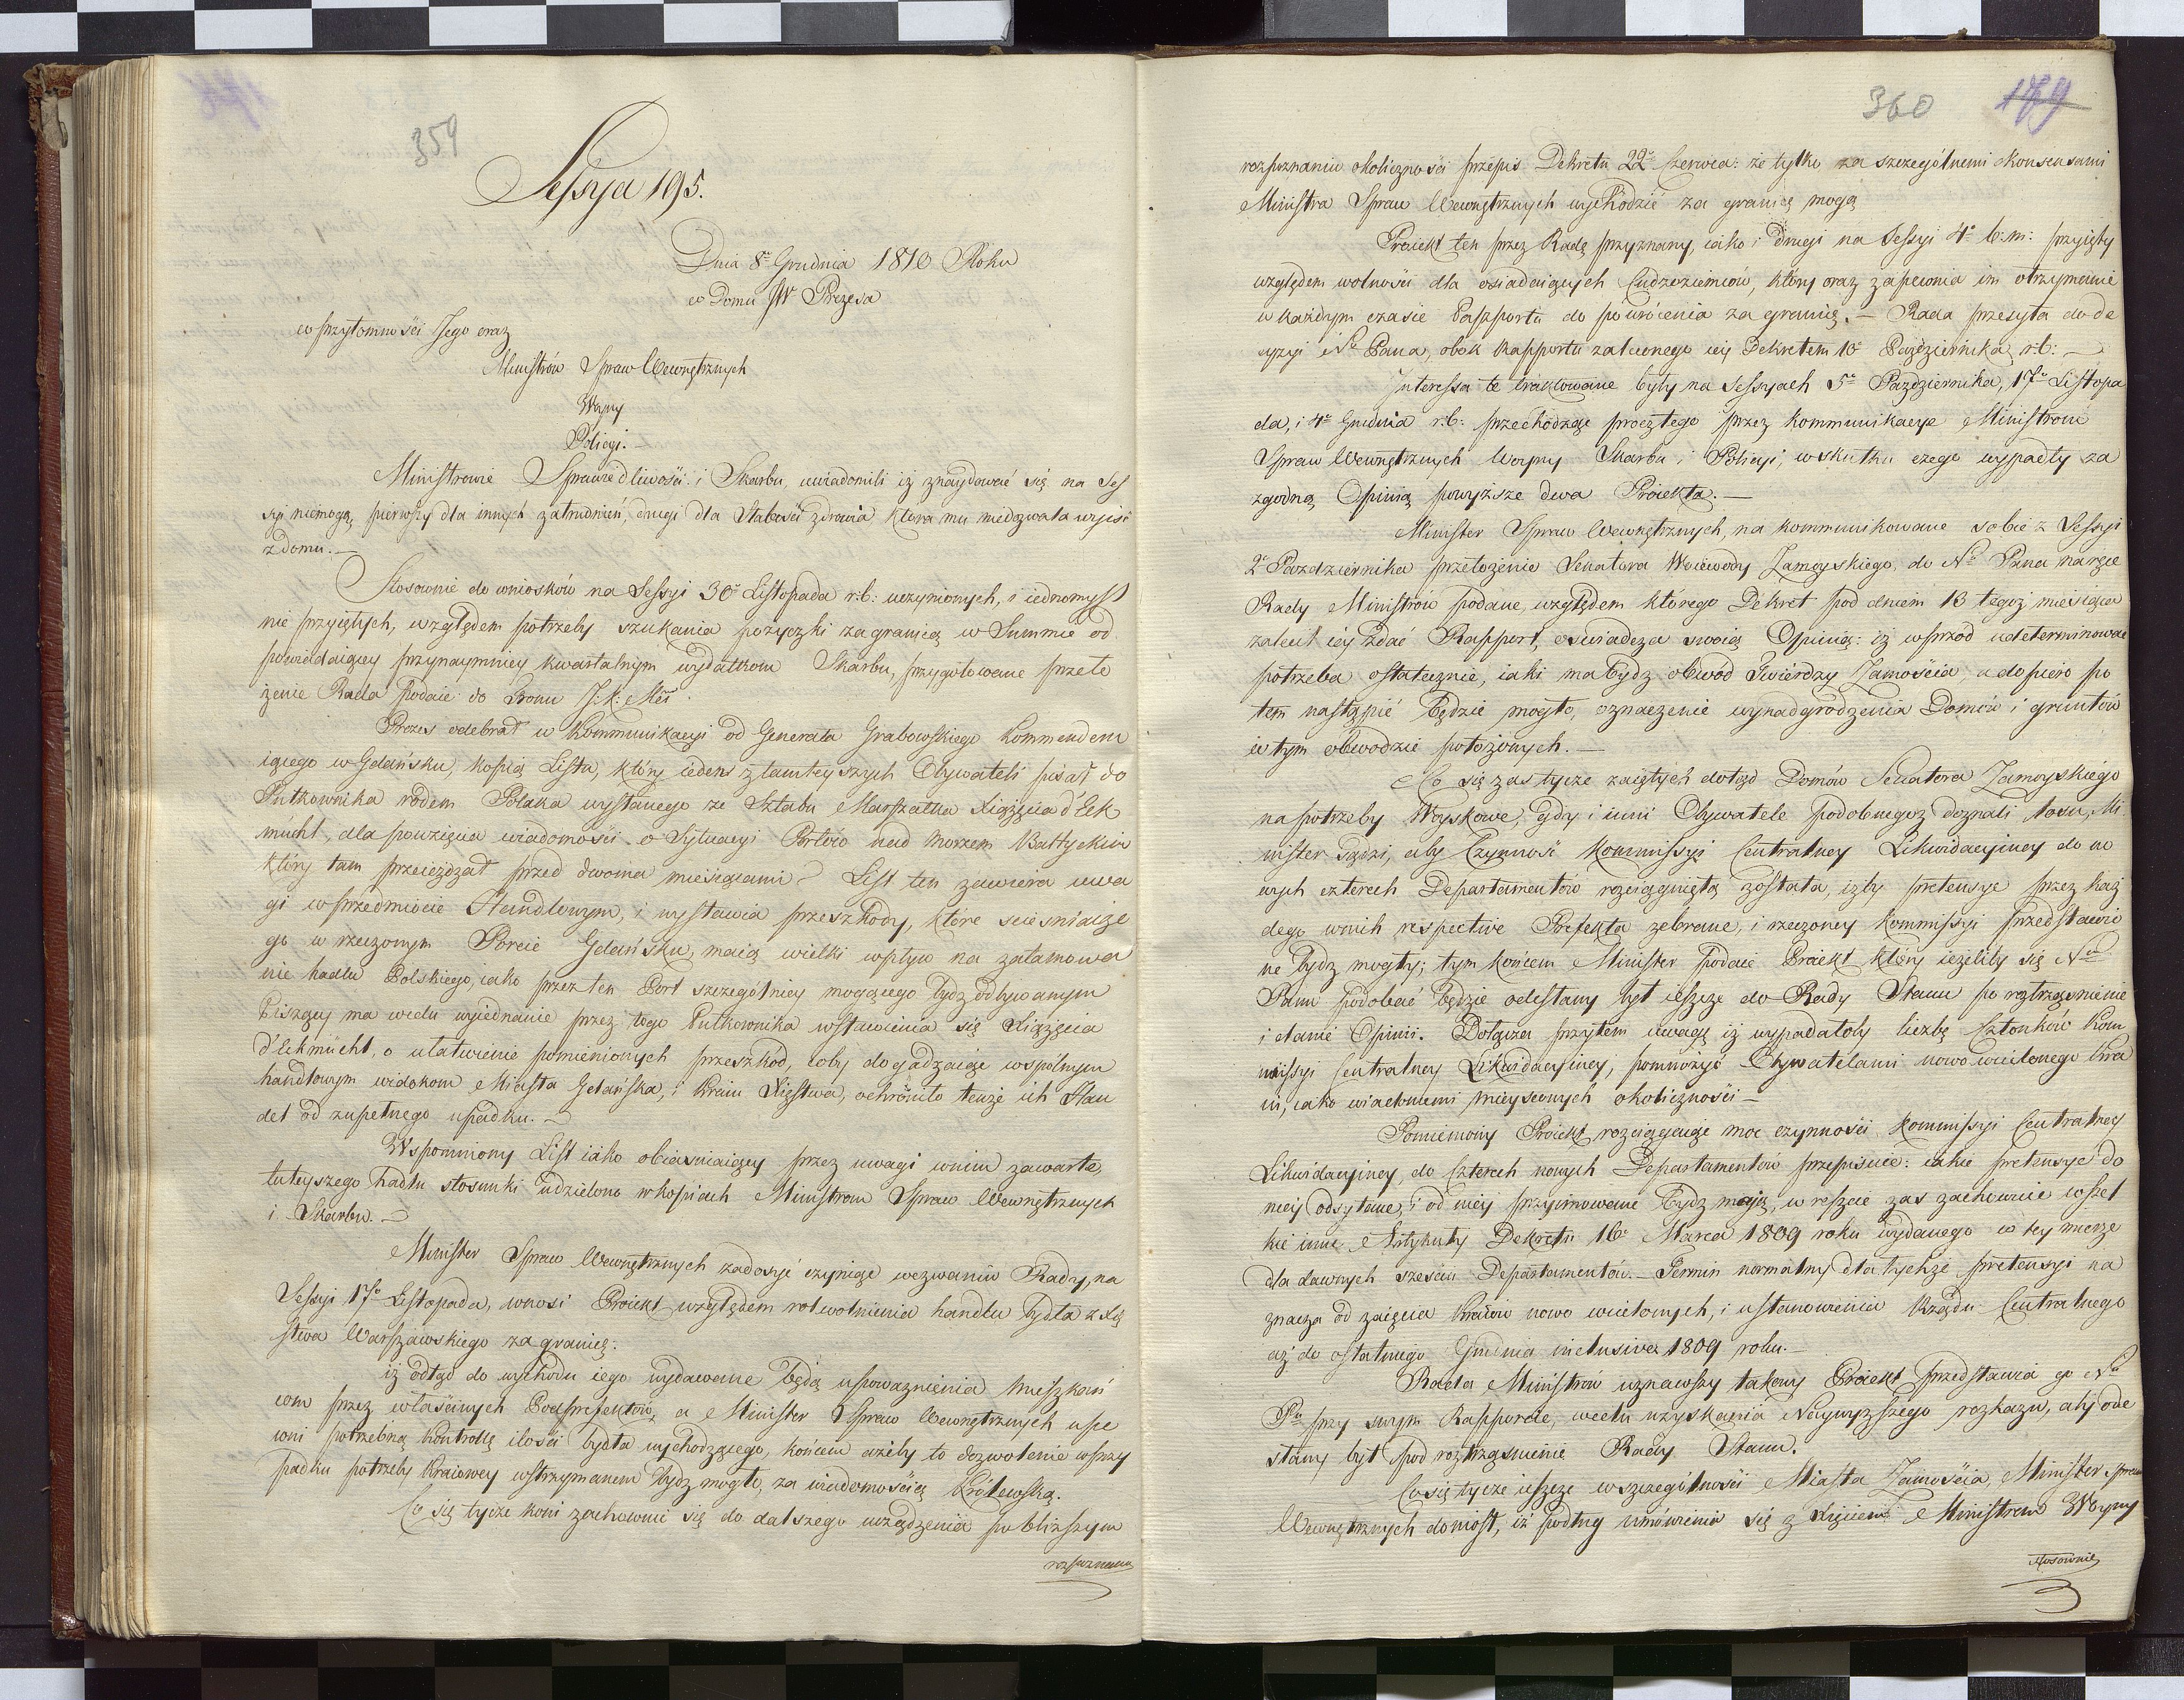 359
Sessya 195.
Dnia 8º Grudnia 1810 Roku
w Domu JW Prezesa
w przytomności Jego oraz
Ministrów Spraw Wewnętrznych
Woyny
Policyi. —
Ministrowie Sprawiedliwości i Skarbu, uwiadomili iż znaydować się na Ses
syi niemogą, pierwszy dla innych zatrudnień, drugi dla słabości zdrowia która mu niedozwala wyiść
z domu. —
Stosownie do wniosków na Sessyi 30º Listopada r: b: uczynionych, i iednomyśl
nie przyiętych, względem potrzeby szukania pożyczki zagranicą w Summie od
powiadaiącey przynaymniey kwartalnym wydatkom Skarbu, przygotowane przeło
żenie Rada podaie do Tronu J: K: Mci.
Prezes odebrał w Kommunikacyi od Generała Grabowskiego Kommenderu
iącego w Gdańsku, kopią Listu, który ieden z tamteyszych Obywateli pisał do
Pułkownika rodem Polaka wysłanego ze Sztabu Marszałka Xiążęcia d'Eck
mücht, dla powzięcia wiadomości o Sytuacyi Portów nad Morzem Baltyckim
który tam przeieżdżał przed dwoma miesiącami. List ten zawiera uwa
gi w przedmiocie Handlowym, i wystawia przeszkody, które ścieśniaiąc
go w rzeczonym Porcie Gdańsku, maią wielki wpływ na zatamowa
nie hadlu Polskiego, iako przez ten Port szczególniey mogącego bydź odbywanym
Piszący ma wcelu wyiednanie przez tego Pułkownika wstawienia się Xiążęcia
d'Eckmücht, o ułatwienie pomienionych przeszkód, coby dogadzaiąc wspólnym
handlowym widokom Miasta Gdańska, i Kraiu Xięstwa, ochroniło tenże ich Han
del od zupełnego upadku. —
Wspomniony List iako obiaśniaiący przez uwagi wnim zawarte,
tuteyszego hadlu stosunki udzielono w kopiach Ministrom Spraw Wewnętrznych
i Skarbu. —
Minister Spraw Wewnętrznych zadosyć czyniąc wezwaniu Rady, na
Sessyi 17º Listopada, wnosi Proiekt względem rolwolnienia handlu bydła z Xię
stwa Warszawskiego za granicę:
iż odtąd do wychodu iego wydawane będą upoważnienia Mieszkań
com przez właściwych Podprefektów, a Minister Spraw Wewnętrznych upe
wni potrzebną kontrollę ilości bydła wychodzącego, końcem ażeby to dozwolenie w przy
padku potrzeby Kraiowey wstrzymanem bydź mogło, za wiadomością Królewską.
Co się tycze koni zachowuie się do dalszego urządzenia po bliższym
rozpoznaniu
360 179
rozpoznaniu okoliczności przepis Dekretu 22º Czerwca: że tylko za szczególnemi Konsensami
Ministra Spraw Wewnętrznych wychodzić za granicę mogą
Proiekt ten przez Radę przyznany, iako i drugi na Sessyi 4º b: m: przyięty
względem wolności dla osiadaiących Cudzoziemców, który oraz zapewnia im otrzymanie
w każdym czasie Passportu do powrócenia za granicę. — Rada przesyła do de
cyzyi Nº Pana, obok Rapportu zaleconego iey Dekretem 10º Października r: b: —
Interessa te traktowane były na Sessyach 5º Października, 17º Listopa
da, i 4º Grudnia r: b: przechodząc prócz tego przez kommunikacye Ministrom
Spraw Wewnętrznych Woyny Skarbu i Policyi, wskutku czego wypadły za
zgodną Opinią powyższe dwa Proiekta. —
Minister Spraw Wewnętrznych, na kommunikowane sobie z Sessyi
2º Października przełożenie Senatora Woiewody Zamoyskiego, do Nº Pana na ręce
Rady Ministrów podane, względem którego Dekret pod dniem 13 tegoż miesiąca
zalecił iey zdać Rapport, oświadcza swoią Opinią: iż wprzód udeterminować
potrzeba ostatecznie, iaki ma bydź obwód Twierdzy Zamościa, a dopiero po
tem nastąpić będzie mogło, oznaczenie wynadgrodzenia Domów i gruntów
w tym obwodzie położonych. —
Co się zas tycze zaiętych dotąd Domów Senatora Zamoyskiego
na potrzeby Woyskowe, gdy i inni Obywatele podobnegoż doznali losu, Mi
nister sądzi, aby Czynność Kommissyi Centralney Likwidacyiney do no
wych czterech Departamentów rozciągniętą została, iżby pretensye przez każ
dego wnich respective Prefekta zebrane, i rzeczoney Kommissyi przedstawio
ne bydź mogły; tym końcem Minister podaie Proiekt który ieżeliby się Nmu
Panu podobać będzie odesłany był ieszcze do Rady Stanu po roztrząśnienie
i danie Opinii. Dołącza przytem uwagę iż wypadałoby liczbę Członków Kom
missyi Centralney Likwidacyiney, pomnożyć Obywatelami nowo wcielonego Kra
iu, iako wiadomemi mieyscowych okoliczności —
Pomieniony Proiekt rozciągaiąc moc czynności Kommissyi Centralney
Likwidacyiney, do Czterech nowych Departamentów przepisuie: iakie pretensye do
niey odsyłane, i od niey przyimowane bydź maią, w reszcie zas zachowuie wszel
kie inne Artykuły Dekretu 16º Marca 1809 roku wydanego w tey mierze
dla dawnych sześciu Departamentów. — Termin normalny dla tychże pretensyi na
znacza od zaięcia Kraiów nowo wcielonych, i ustanowienia Rządu Centralnego
aż do ostatniego Grudnia inclusive 1809 roku. —
Rada Ministrów uznawszy takowy Proiekt przedstawia go Nmu
Pu przy swym Rapporcie, wcelu uzyskania Naywyższego rozkazu, aby ode
słany był pod roztrząśnienie Rady Stanu.
Co się tycze ieszcze w szczególności Miasta Zamościa, Minister Spraw
Wewnętrznych doniosł, iż podług umówienia się z Xięciem Ministrem Woyny
stosownie